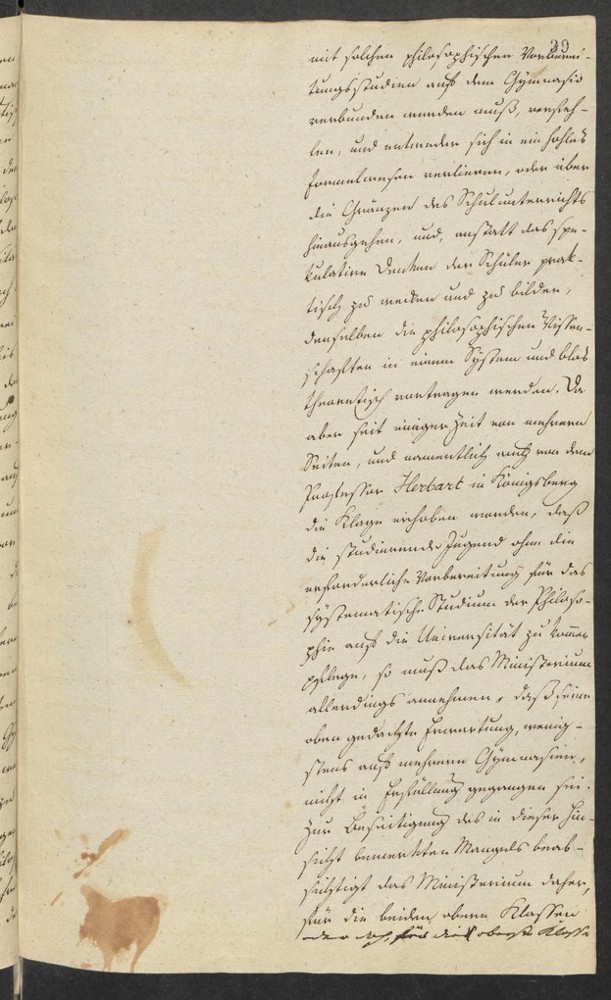 29
mit solchen philosophischen Vorberei-
tungsstudien auf dem Gymnasio
verbunden werden muß, verfeh-
len, und entweder sich in ein hohles
Formelwesen verlieren, oder über
die Gränzen des Schulunterrichts
hinausgehen, und, anstatt das spe-
kulative Denken der Schüler prak-
tisch zu wecken und zu bilden,
denselben die philosophischen Wissen-
schaften in einem System und blos
theoretisch vortragen werden. Da
aber seit einiger Zeit von mehrern
Seiten, und namentlich auch von dem
Professor Herbart in Königsberg
die Klage erhoben worden, daß
die studierende Jugend ohne die
erforderliche Vorbereitung für das
systematische Studium der Philoso-
phie auf die Universität zu kommen
pflege, so muß das Ministerium
allerdings annehmen, daß seine
oben gedachte Erwartung, wenig-
stens auf mehrern Gymnasien,
nicht in Erfüllung gegangen sei.
Zur Beseitigung des in dieser Hin-
sicht bemerkten Mangels beab-
sichtigt das Ministerium daher,
für die beiden obern Klassen
oder doch für die oberste Klasse